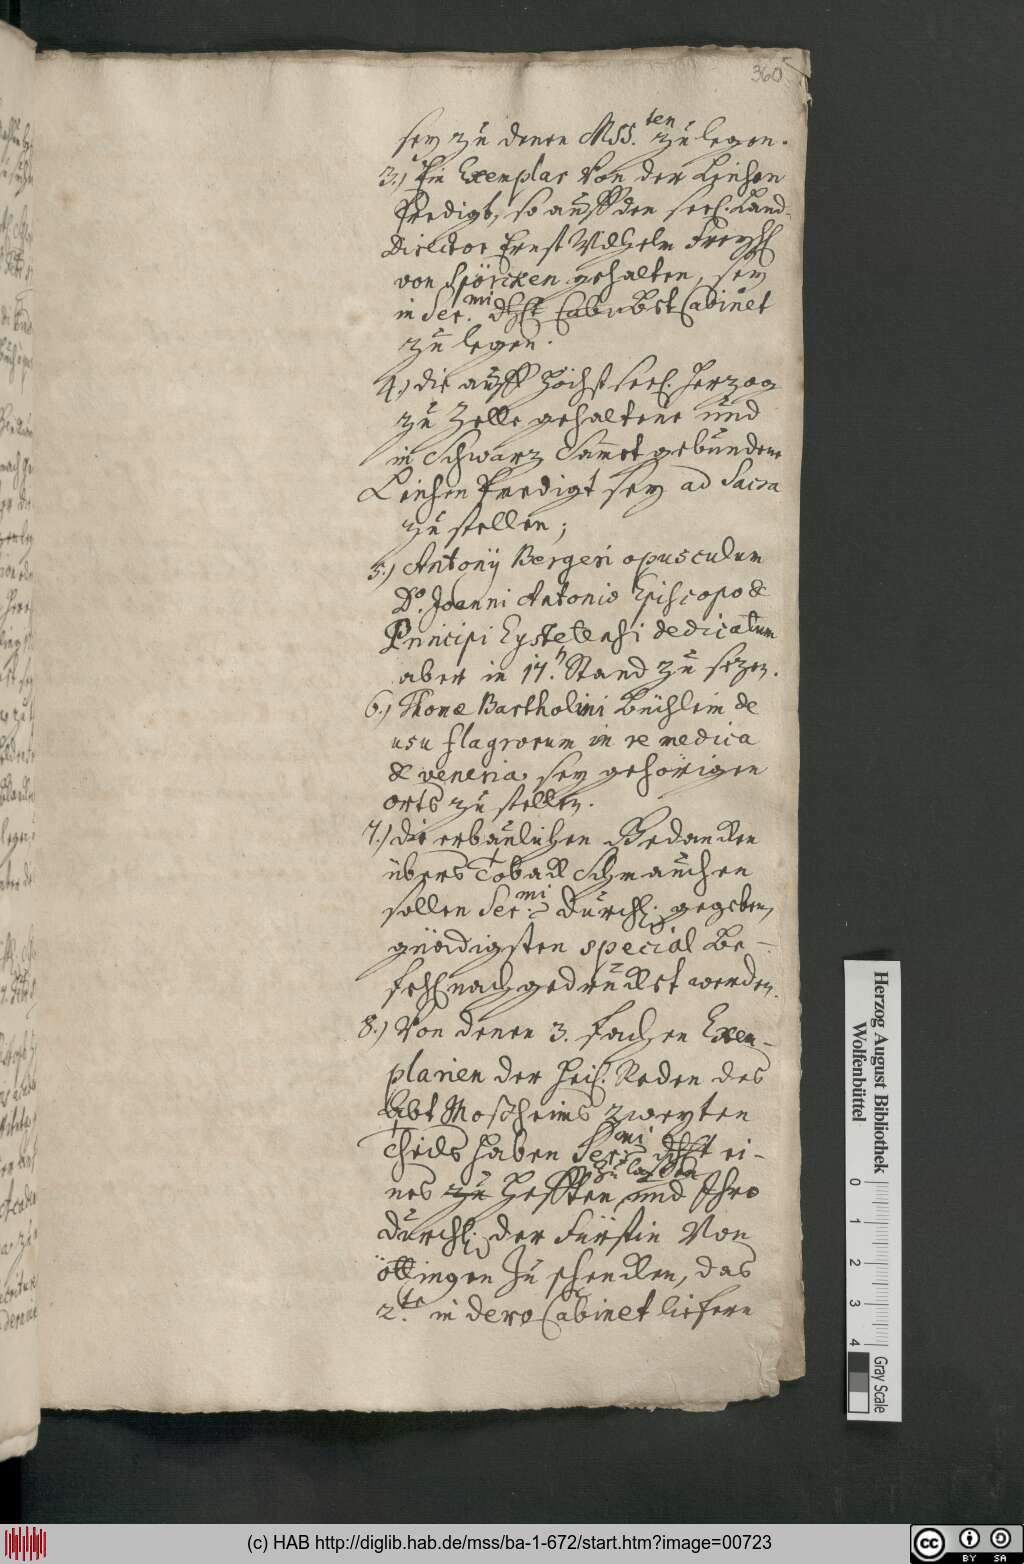 360
sey zu denen Mss.ten zu legen.
3.) Ein Exemplar von der Leichen
Predigt, so auff den seel. Land-
Director Ernst Wilhelm Freyh.
von Spörcken gehalten, sey
in Ser.mi Cabinet
zu legen.
4.) die auff höchst seel. Herzog
zu Zelle gehaltene und
in Schwarz Samet gebundene
Leichen Predigt sey ad Sacra
zu stellen;
5.) Antonij Bergeri opusculum
Do. Joanni Antonio Episcopo &
Principi Eystetensi dedicatum
aber in 17.n Stand zu sezen.
6.) Thomæ Bartholini Büchlein de
usu flagrorum in re medica
& veneria, sey gehörigen
orts zu stellen.
7.) die erbaulichen Gedancken
übers Toback Schmauchen
sollen Ser.mi Durchl. gegeben,
gnädigsten special Be-
fehl nach gedruckt werden.
8.) Von denen 3. fachen Exem-
plarien der heil. Reden des
Abt Mosheims zweyten
Theils haben Ser.mi dhlt ei-
nes zu hefften zu laßen und Ihro
Durchl. der Fürstin von
Öttingen zu schencken, das
2.te in dero Cabinet liefern
Herzog August Bibliothek
Wolfenbüttel
0 1 2 3 4
Gray Scale
(c) HAB http://diglib.hab.de/mss/ba-1-672/start.htm?image=00723
cc BY SA